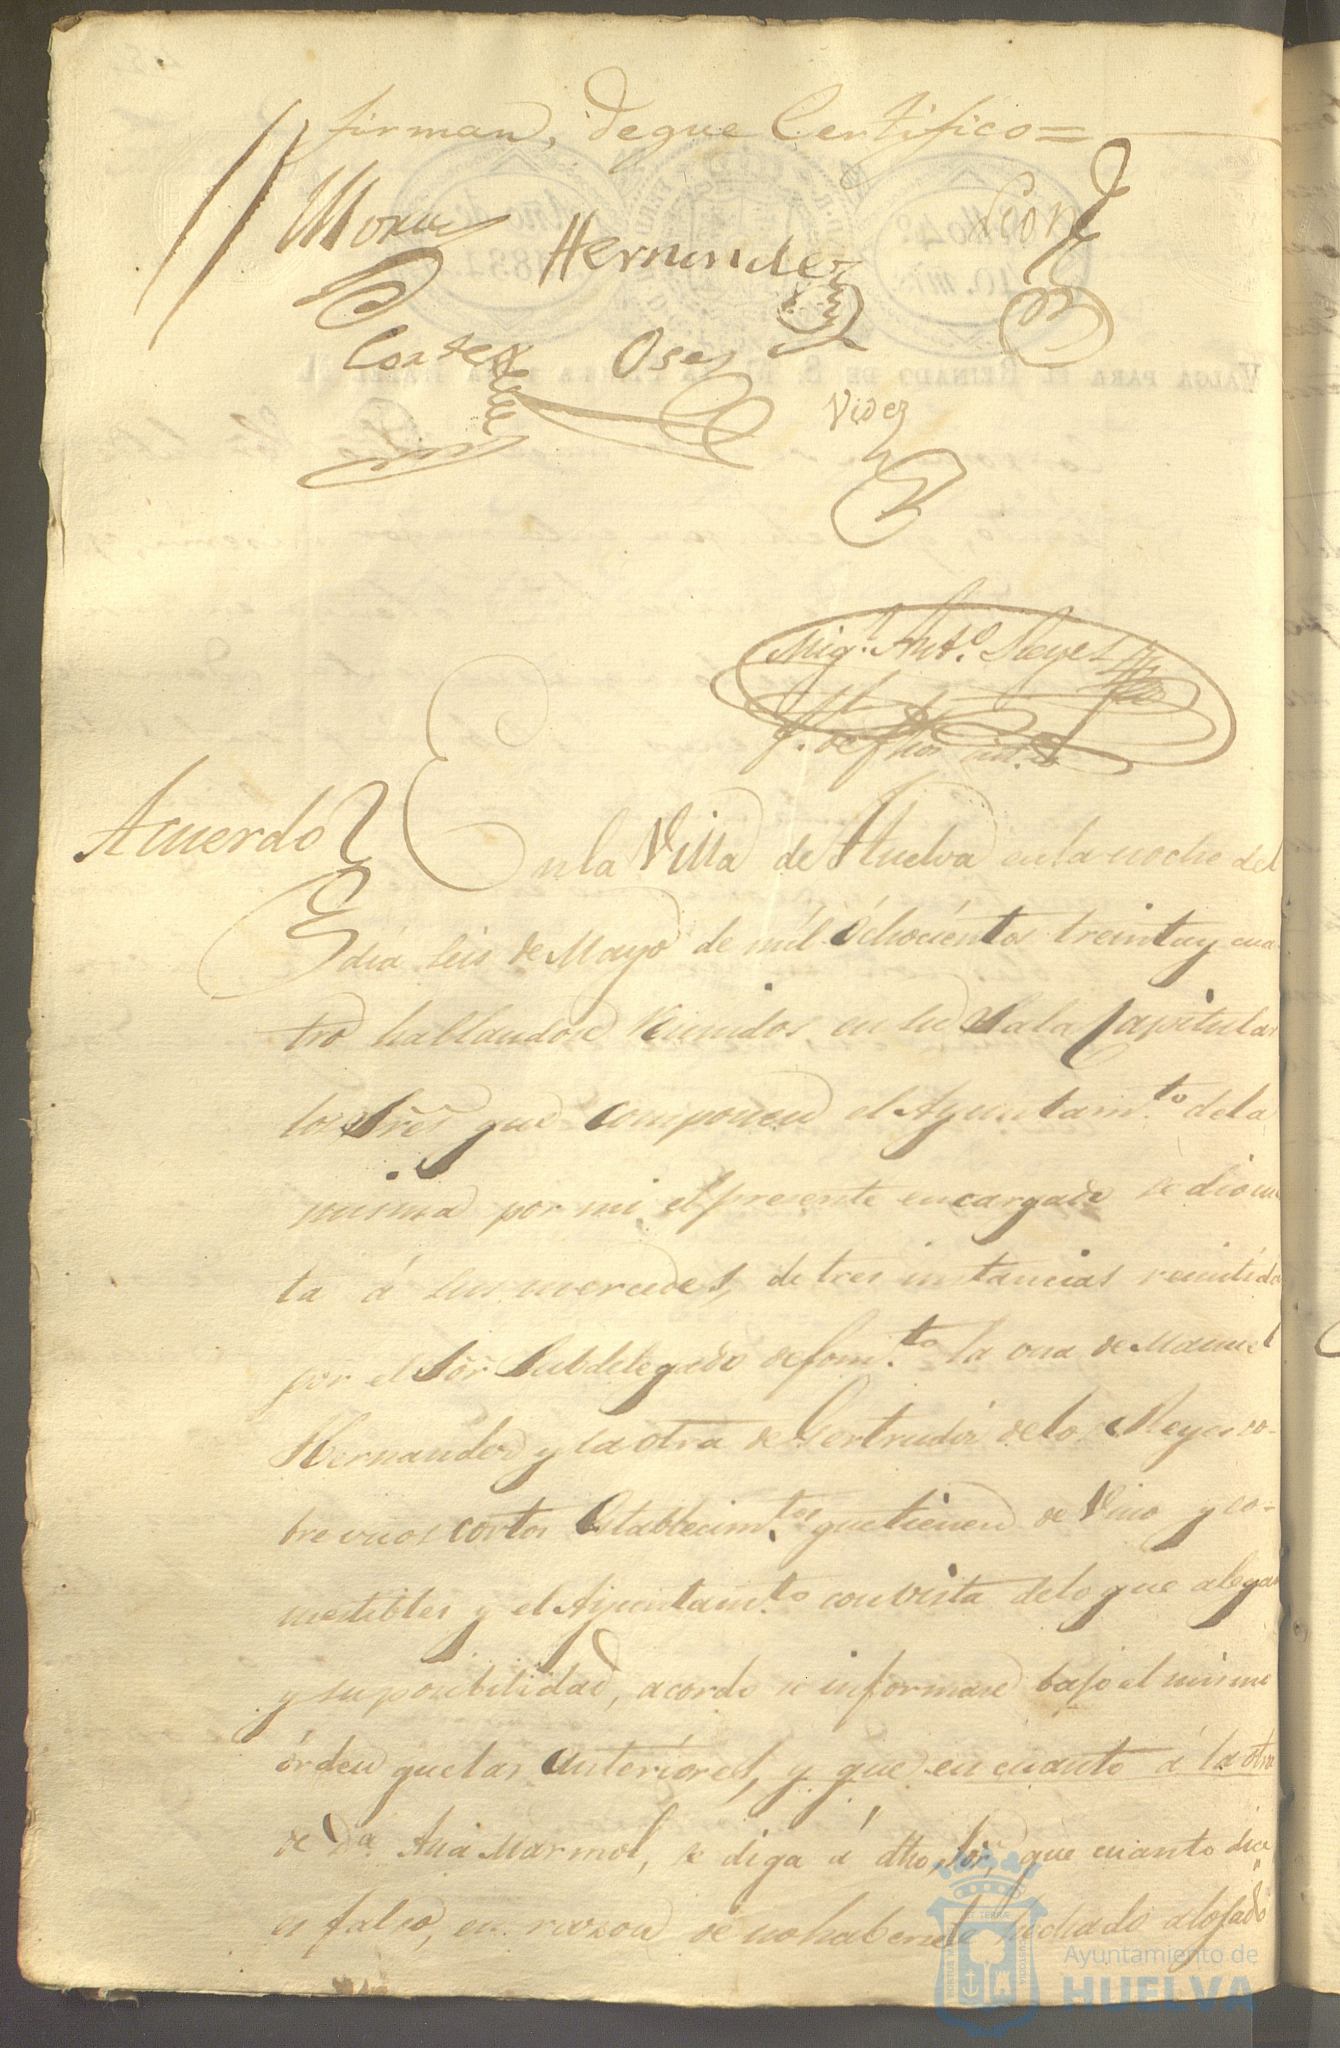 firman, deque Certifico=
Mora Hernandez
Cortes Oses
Videz
Mig.l Ant.o Reyes
Acuerdo
En la Villa de Huelva en la noche del
dia seis de Mayo de mil ochocientos treinta y cua-
tro hallandose Reunidos, en su Sala Capitular
los Sres que componen el Ayuntam.to de la
misma por mi el presente encargado se dio cuen
ta á sus mercedes, de tres instancias remitida
por el Sor Subdelegado de fom.to la una de Manuel
Hernandez y la otra de Gertrudis de los Reyes so-
bre unos cortos Establecim.tos que tienen de Vino y co-
mestibles y el Ayuntam.to con vista de lo que alegan
y su posibilidad, acordo se informase bajo el mismo
órden que las anteriores, y que en cuanto á la otra
de D.a Ana Marmol, se diga á dho Sor, que cuanto dice
es falso, en razon de no haberse hechado alojado
Ayuntamiento de
HUELVA